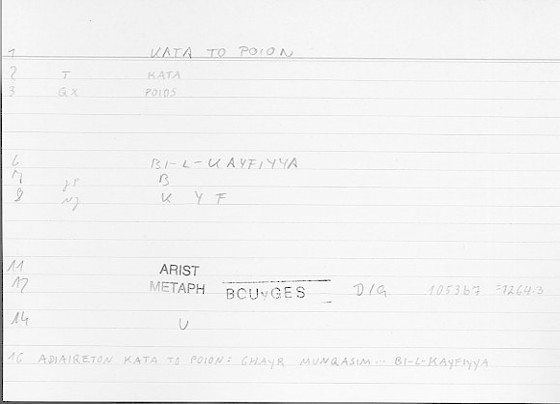 1 KATA TO POION
2 T KATA
3 GX POIOS
6 BI-L-KAYFIYYA
7 B
8 NJ K Y F
11 ARIST
12 METAPH BOUYGES D/G 1053b7 =1264.3
14 U
16 ADIAIRETON KATA TO POION: GHAYR MUNQASIM ... BI-L-KAYFIYYA